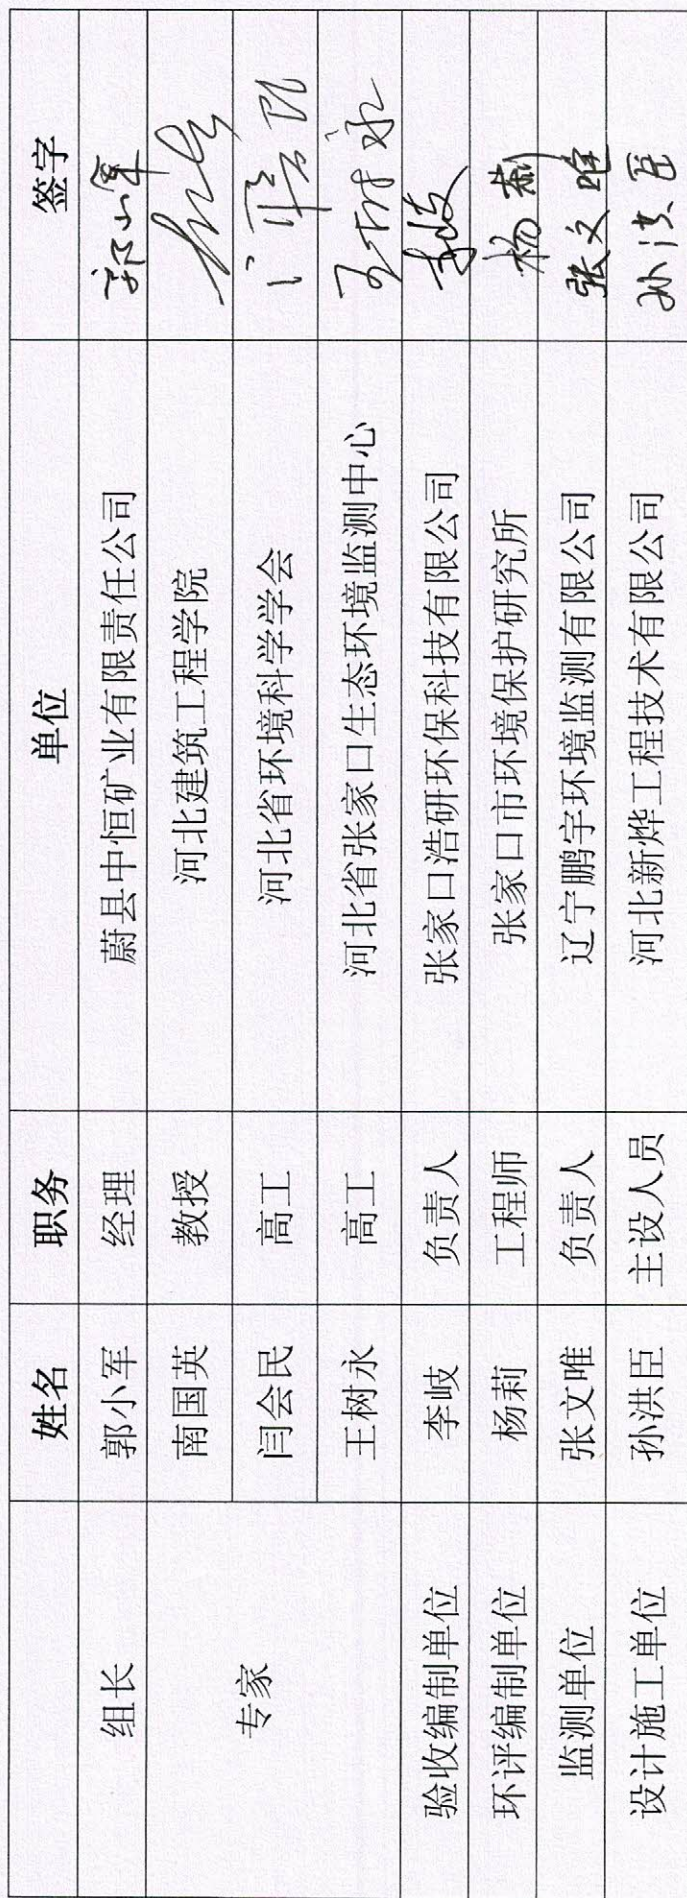 姓名 职务 单位 签字
组长 郭小军 经理 蔚县中恒矿业有限责任公司 郭小军
专家 南国英 教授 河北建筑工程学院
闫会民 高工 河北省环境科学学会
王树永 高工 河北省张家口生态环境监测中心 王树永
验收编制单位 李岐 负责人 张家口浩研环保科技有限公司 李岐
环评编制单位 杨莉 工程师 张家口市环境保护研究所 杨莉
监测单位 张文唯 负责人 辽宁鹏宇环境监测有限公司 张文唯
设计施工单位 孙洪臣 主设人员 河北新烨工程技术有限公司 孙洪臣